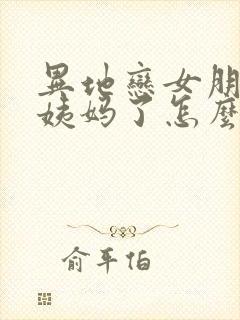 異地戀女朋
姨媽了怎麼
俞平伯